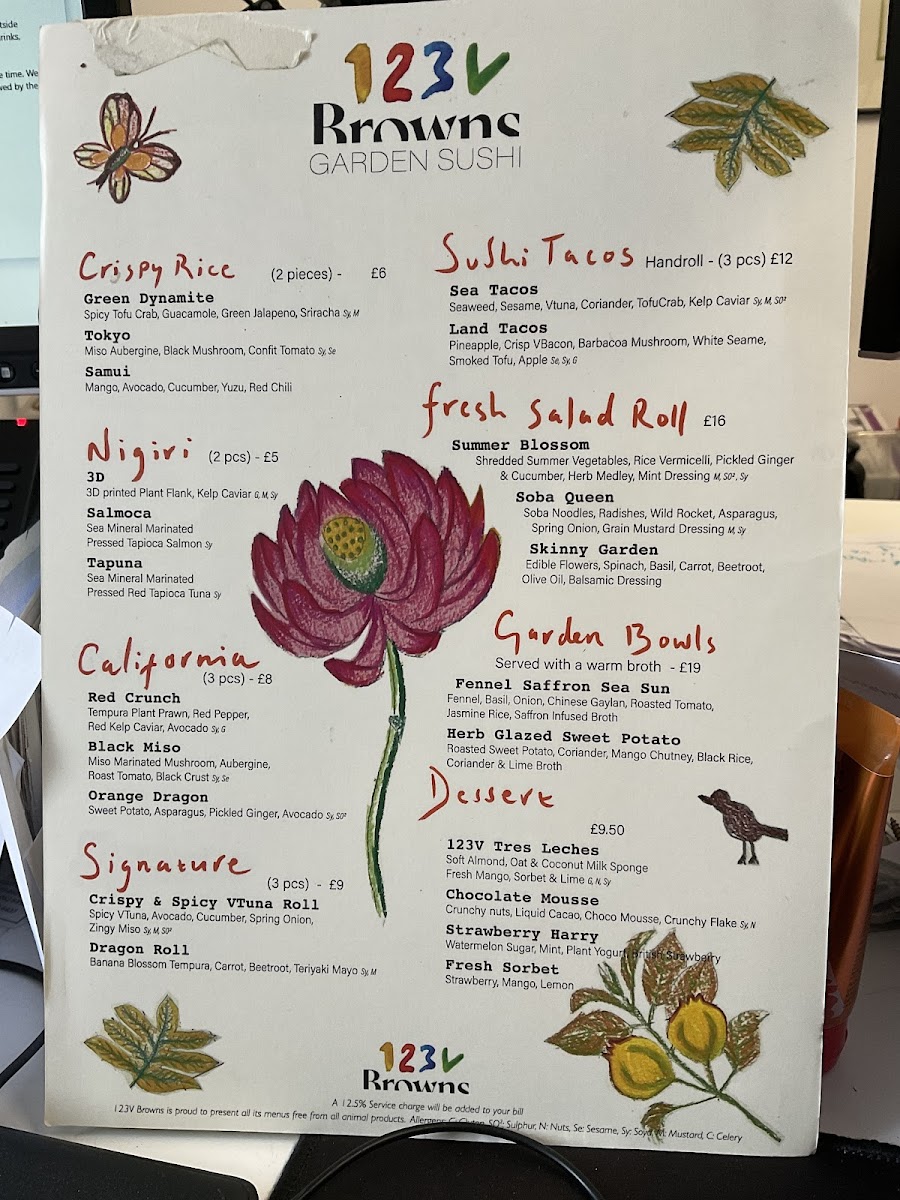 tside
rinks.
e time. We
ved by the
123V
Browns
GARDEN SUSHI
Crispy Rice (2 pieces) - £6
Green Dynamite
Spicy Tofu Crab, Guacamole, Green Jalapeno, Sriracha Sy, M
Tokyo
Miso Aubergine, Black Mushroom, Confit Tomato Sy, Se
Samui
Mango, Avocado, Cucumber, Yuzu, Red Chili
Nigiri (2 pcs) - £5
3D
3D printed Plant Flank, Kelp Caviar G, M, Sy
Salmoca
Sea Mineral Marinated
Pressed Tapioca Salmon Sy
Tapuna
Sea Mineral Marinated
Pressed Red Tapioca Tuna Sy
California
(3 pcs) - £8
Red Crunch
Tempura Plant Prawn, Red Pepper,
Red Kelp Caviar, Avocado Sy, G
Black Miso
Miso Marinated Mushroom, Aubergine,
Roast Tomato, Black Crust Sy, Se
Orange Dragon
Sweet Potato, Asparagus, Pickled Ginger, Avocado Sy, SO²
Signature
(3 pcs) - £9
Crispy & Spicy VTuna Roll
Spicy VTuna, Avocado, Cucumber, Spring Onion,
Zingy Miso Sy, M, SO²
Dragon Roll
Banana Blossom Tempura, Carrot, Beetroot, Teriyaki Mayo Sy, M
Sushi Tacos Handroll - (3 pcs) £12
Sea Tacos
Seaweed, Sesame, Vtuna, Coriander, TofuCrab, Kelp Caviar Sy, M, SO²
Land Tacos
Pineapple, Crisp VBacon, Barbacoa Mushroom, White Seame,
Smoked Tofu, Apple Se, Sy, G
fresh Salad Roll £16
Summer Blossom
Shredded Summer Vegetables, Rice Vermicelli, Pickled Ginger
& Cucumber, Herb Medley, Mint Dressing M, SO², Sy
Soba Queen
Soba Noodles, Radishes, Wild Rocket, Asparagus,
Spring Onion, Grain Mustard Dressing M, Sy
Skinny Garden
Edible Flowers, Spinach, Basil, Carrot, Beetroot,
Olive Oil, Balsamic Dressing
Garden Bowls
Served with a warm broth - £19
Fennel Saffron Sea Sun
Fennel, Basil, Onion, Chinese Gaylan, Roasted Tomato,
Jasmine Rice, Saffron Infused Broth
Herb Glazed Sweet Potato
Roasted Sweet Potato, Coriander, Mango Chutney, Black Rice,
Coriander & Lime Broth
Dessert
£9.50
123V Tres Leches
Soft Almond, Oat & Coconut Milk Sponge
Fresh Mango, Sorbet & Lime G, N, Sy
Chocolate Mousse
Crunchy nuts, Liquid Cacao, Choco Mousse, Crunchy Flake Sy, N
Strawberry Harry
Watermelon Sugar, Mint, Plant Yogurt, British Strawberry
Fresh Sorbet
Strawberry, Mango, Lemon
123V
Browns
A 12.5% Service charge will be added to your bill
123V Browns is proud to present all its menus free from all animal products. Allergens G: Gluten, SO²: Sulphur, N: Nuts, Se: Sesame, Sy: Soya, M: Mustard, C: Celery